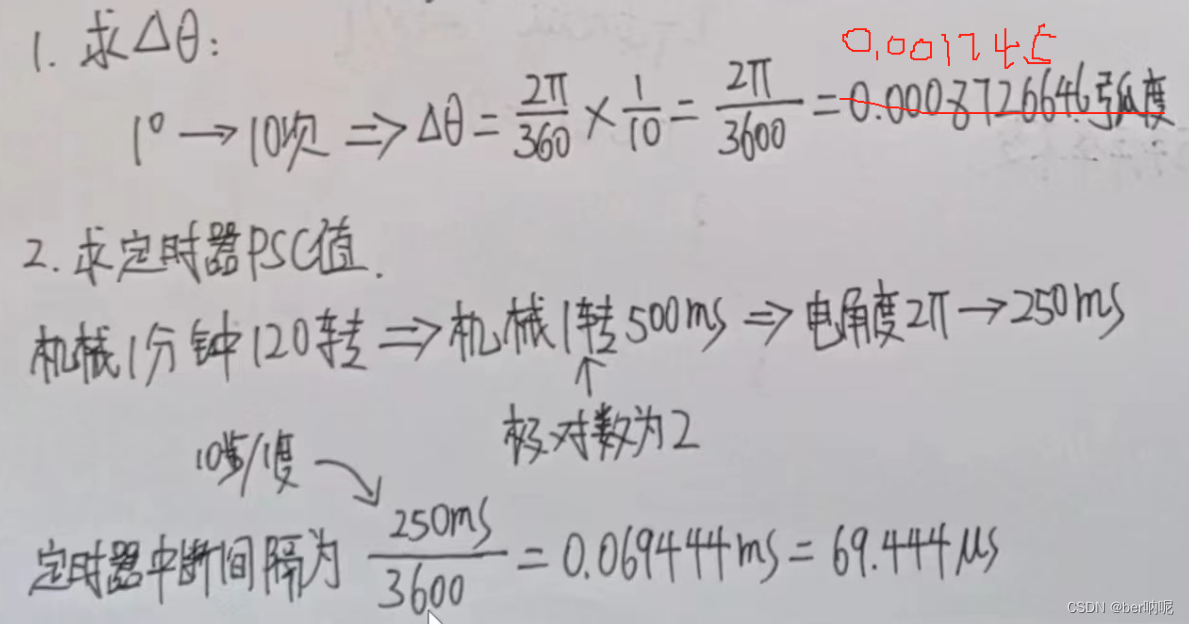 1. 求Δθ:
0.001745
1° → 10次 ⇒ Δθ = 2π/360 × 1/10 = 2π/3600 = 0.0008726646弧度
2. 求定时器PSC值.
机械1分钟120转 ⇒ 机械1转500ms ⇒ 电角度2π → 250ms
↑
极对数为2
10步/1度
定时器中断间隔为 250ms/3600 = 0.069444ms = 69.444μs
CSDN @ber呐呢